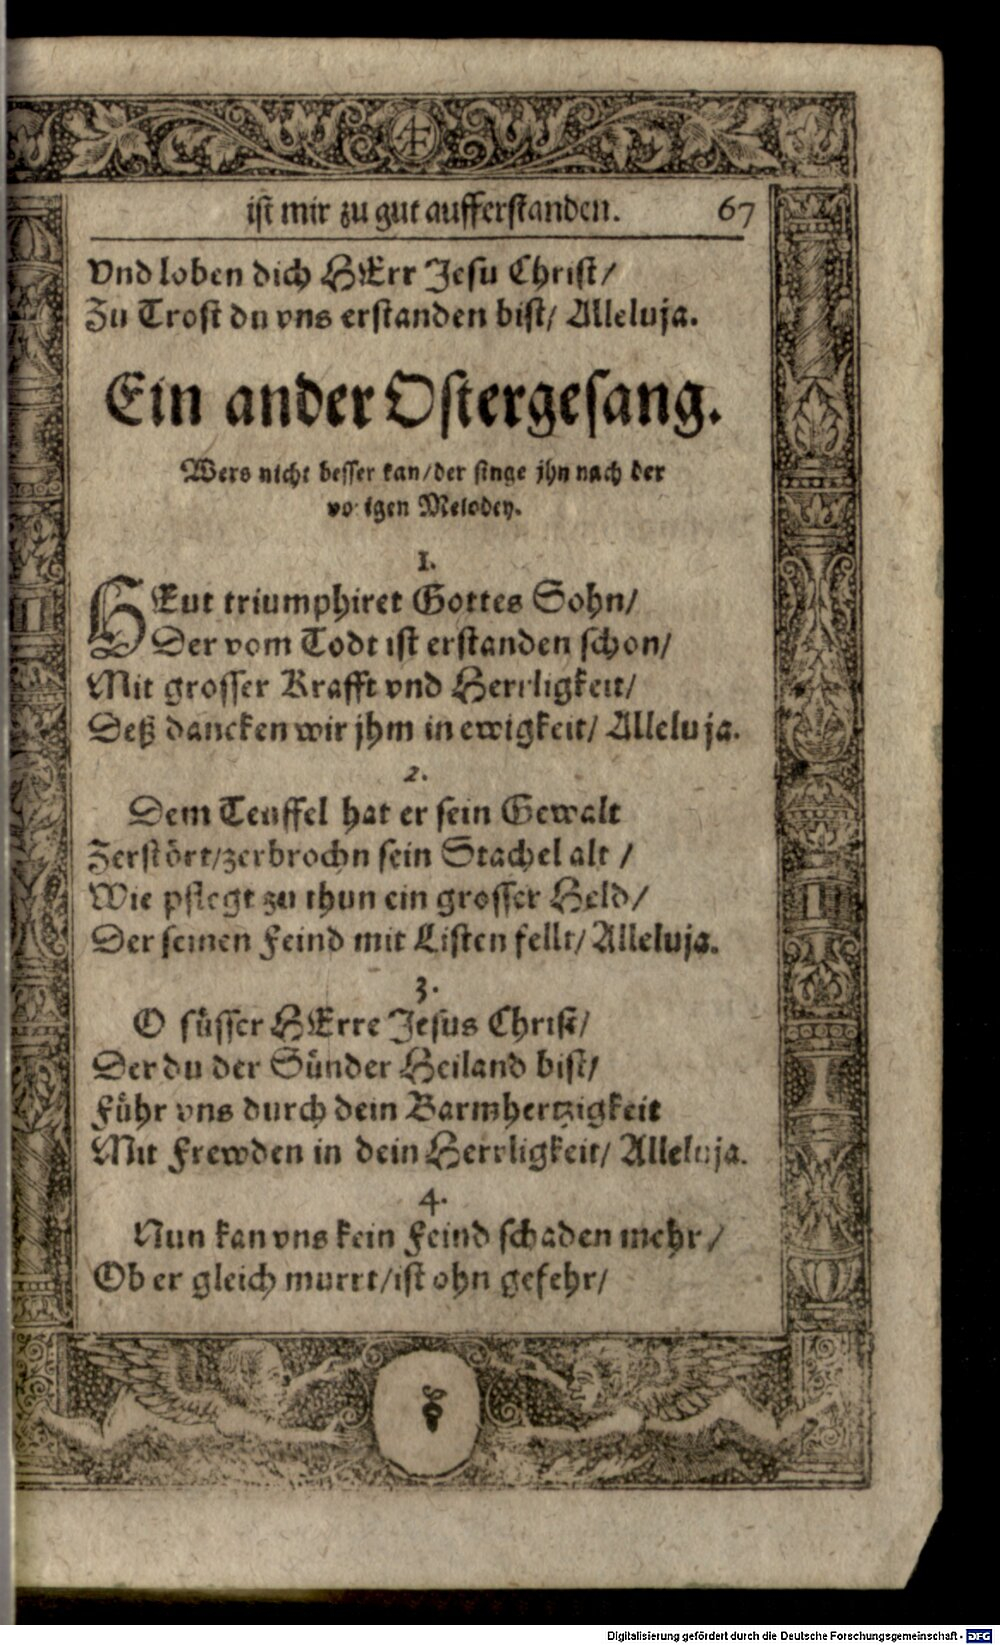 ist mir zu gut aufferstanden. 67
Vnd loben dich HErr Jesu Christ/
Zu Trost du vns erstanden bist/ Alleluja.
Ein ander Ostergesang.
Wers nicht besser kan/der singe jhn nach der
vo igen Melodey.
1.
HEut triumphiret Gottes Sohn/
Der vom Todt ist erstanden schon/
Mit grosser Krafft vnd Herrligkeit/
Deß dancken wir jhm in ewigkeit/ Alleluja.
2.
Dem Teuffel hat er sein Gewalt
Zerstört/zerbrochn sein Stachel alt /
Wie pflegt zu thun ein grosser Held/
Der seinen Feind mit Listen fellt/ Alleluja.
3.
O süsser HErre Jesus Christ/
Der du der Sünder Heiland bist/
Führ vns durch dein Barmhertzigkeit
Mit Frewden in dein Herrligkeit/ Alleluja.
4.
Nun kan vns kein Feind schaden mehr /
Ob er gleich murrt/ist ohn gefehr/
Digitalisierung gefördert durch die Deutsche Forschungsgemeinschaft - DFG